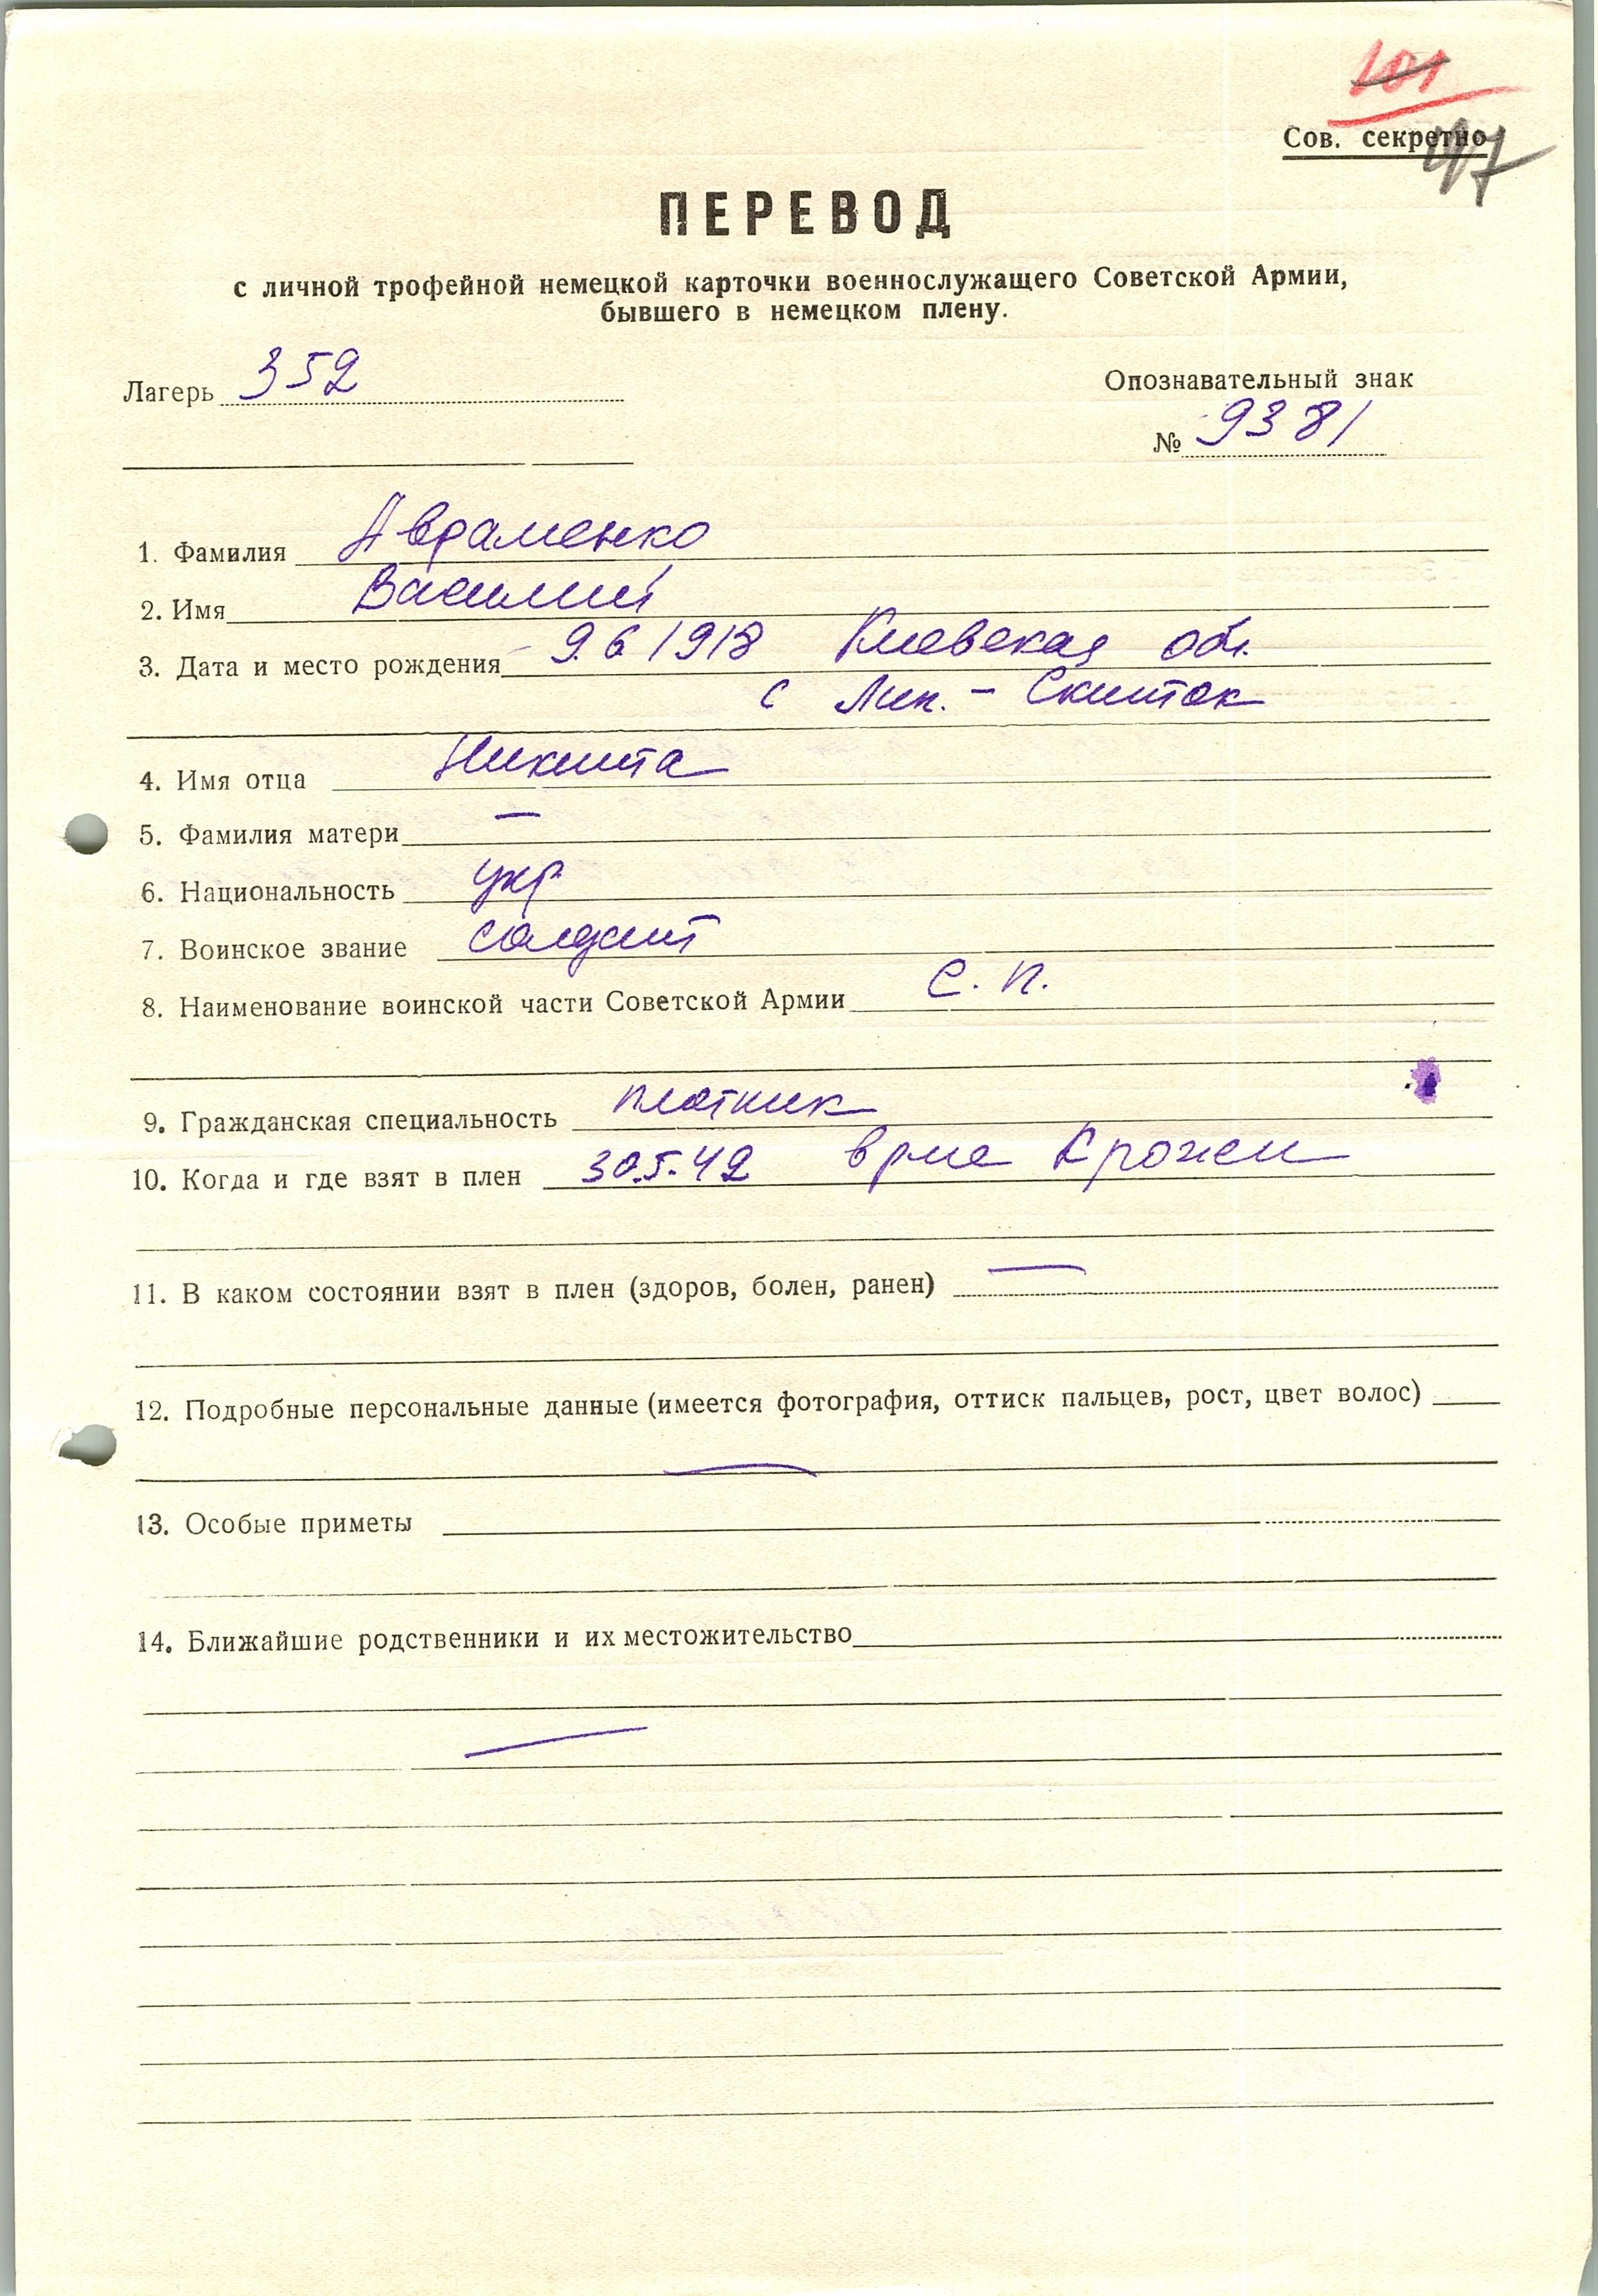 101
Сов. секретно
97
ПЕРЕВОД
с личной трофейной немецкой карточки военнослужащего Советской Армии,
бывшего в немецком плену.
Лагерь 352
Опознавательный знак
№ 9381
1. Фамилия Авраменко
2. Имя Василий
3. Дата и место рождения 9.6 1918 Киевская обл.
с Лип. - Скиток
4. Имя отца Никита
5. Фамилия матери —
6. Национальность укр
7. Воинское звание солдат
8. Наименование воинской части Советской Армии С. П.
9. Гражданская специальность плотник
10. Когда и где взят в плен 30.5.42
11. В каком состоянии взят в плен (здоров, болен, ранен) —
12. Подробные персональные данные (имеется фотография, оттиск пальцев, рост, цвет волос)
—
13. Особые приметы
14. Ближайшие родственники и их местожительство
—